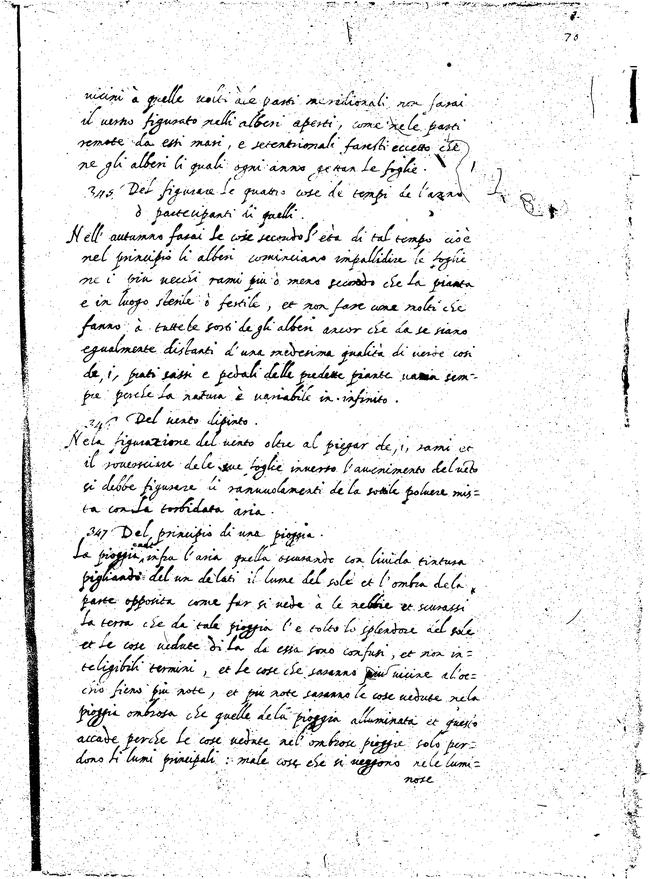 70
vicini à quelle volti à le parti meridionali non farai
il verno figurato nelli alberi aperti, come nele parti
remote da essi mari, e setentrionali faresti eccetto che
ne gli alberi li quali ogni anno gettan le foglie.
345 Del figurare le quattro cose de tempi de l'anno
ò partecipanti di quelli.
Nell' autumno farai le cose secondo l'età di tal tempo cioè
nel principio li alberi cominciano impallidire le foglie
ne i più vecchi rami più ò meno secondo che la pianta
e in luogo sterile ò fertile, et non fare come molti che
fanno à tutte le sorti de gli alberi ancor che da se siano
egualmente distanti d'una medesima qualità di verde così
de, i, prati sassi e pedali delle predette piante varia sem-
pre perche la natura è variabile in infinito.
346 Del vento dipinto.
Nela figurazione del vento oltre al piegar de, i, rami et
il rovesciare dele sue foglie inverso l'avenimento del veto
si debbe figurare li rannuvolamenti de la sottile polvere mis=
ta con la torbidata aria.
347 Del principio di una pioggia.
La pioggia cade infra l'aria quella oscurando con livida tintura
pigliando del un de lati il lume del sole et l'ombra de la
parte opposita come far si vede à le nebbie et scurassi
la terra che da tale pioggia l'e tolto lo splendore del sole
et le cose vedute di la da essa sono confusi, et non in=
teligibili termini, et le cose che saranno più vicine al'oc=
chio fieno più note, et più note saranno le cose vedute nela
pioggia ombrosa che quelle dela pioggia alluminata et questo
accade perche le cose vedute nel' ombrose piogge solo per=
dono li lumi principali: ma le cose che si veggono nele lumi=
nose